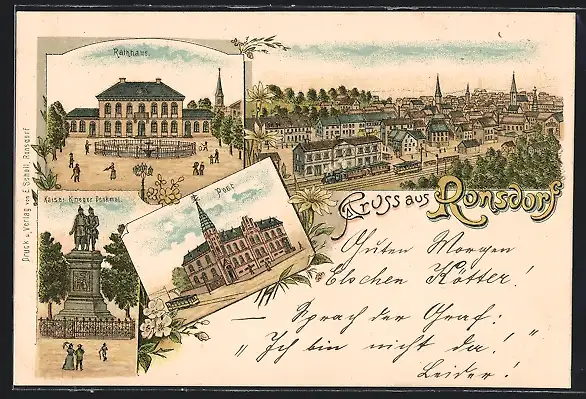 Rathhaus.
Kaiser Krieger Denkmal.
Post
Druck u. Verlag von E. Scholl, Ronsdorf
Gruss aus Ronsdorf
Guten Morgen
Elschen Kötter!
— Sprach der Graf:
„Ich bin nicht da!"
Leider!